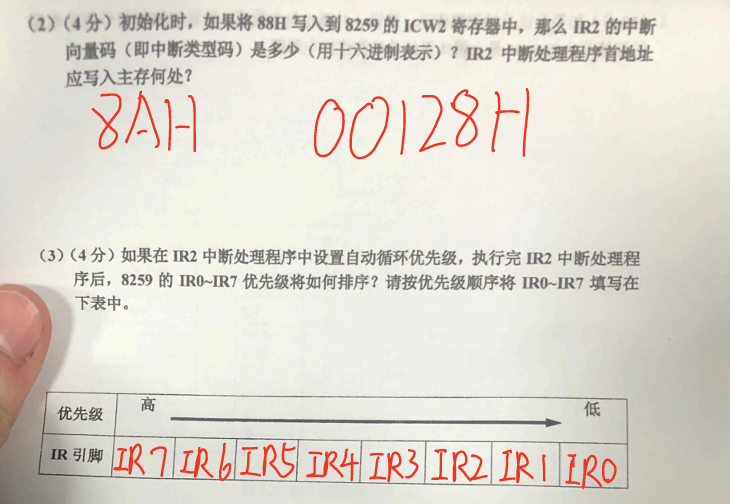 (2)(4分)初始化时，如果将 88H 写入到 8259 的 ICW2 寄存器中，那么 IR2 的中断
向量码（即中断类型码）是多少（用十六进制表示）？IR2 中断处理程序首地址
应写入主存何处？
8AH 00128H
(3)(4分)如果在 IR2 中断处理程序中设置自动循环优先级，执行完 IR2 中断处理程
序后，8259 的 IR0~IR7 优先级将如何排序？请按优先级顺序将 IR0~IR7 填写在
下表中。
优先级 高 低
IR 引脚 IR7 IR6 IR5 IR4 IR3 IR2 IR1 IR0